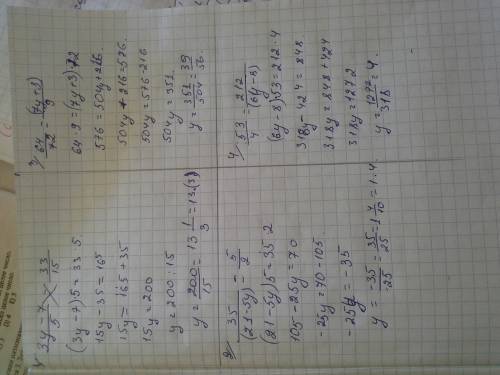 1) 3y-7/5 = 33/15
(3y-7)5=33·5
15y-35=165
15y=165+35
15y=200
y=200:15
y=200/15=13 1/3=13,(3)
2) 35/(21-5y) = 5/2
(21-5y)5=35·2
105-25y=70
-25y=70-105
-25y=-35
y=-35/-25=35/25=1 4/10=1.4
3) 64/72=(7y+3)/9
64·9=(7y+3)·72
576=504y+216.
504y+216=576.
504y=576-216
504y=351
y=351/504=39/56.
4) 53/4=212/(6y-8)
(6y-8)53=212·4
318y-424=848
318y=848+424
318y=1272
y=1272/318=4.